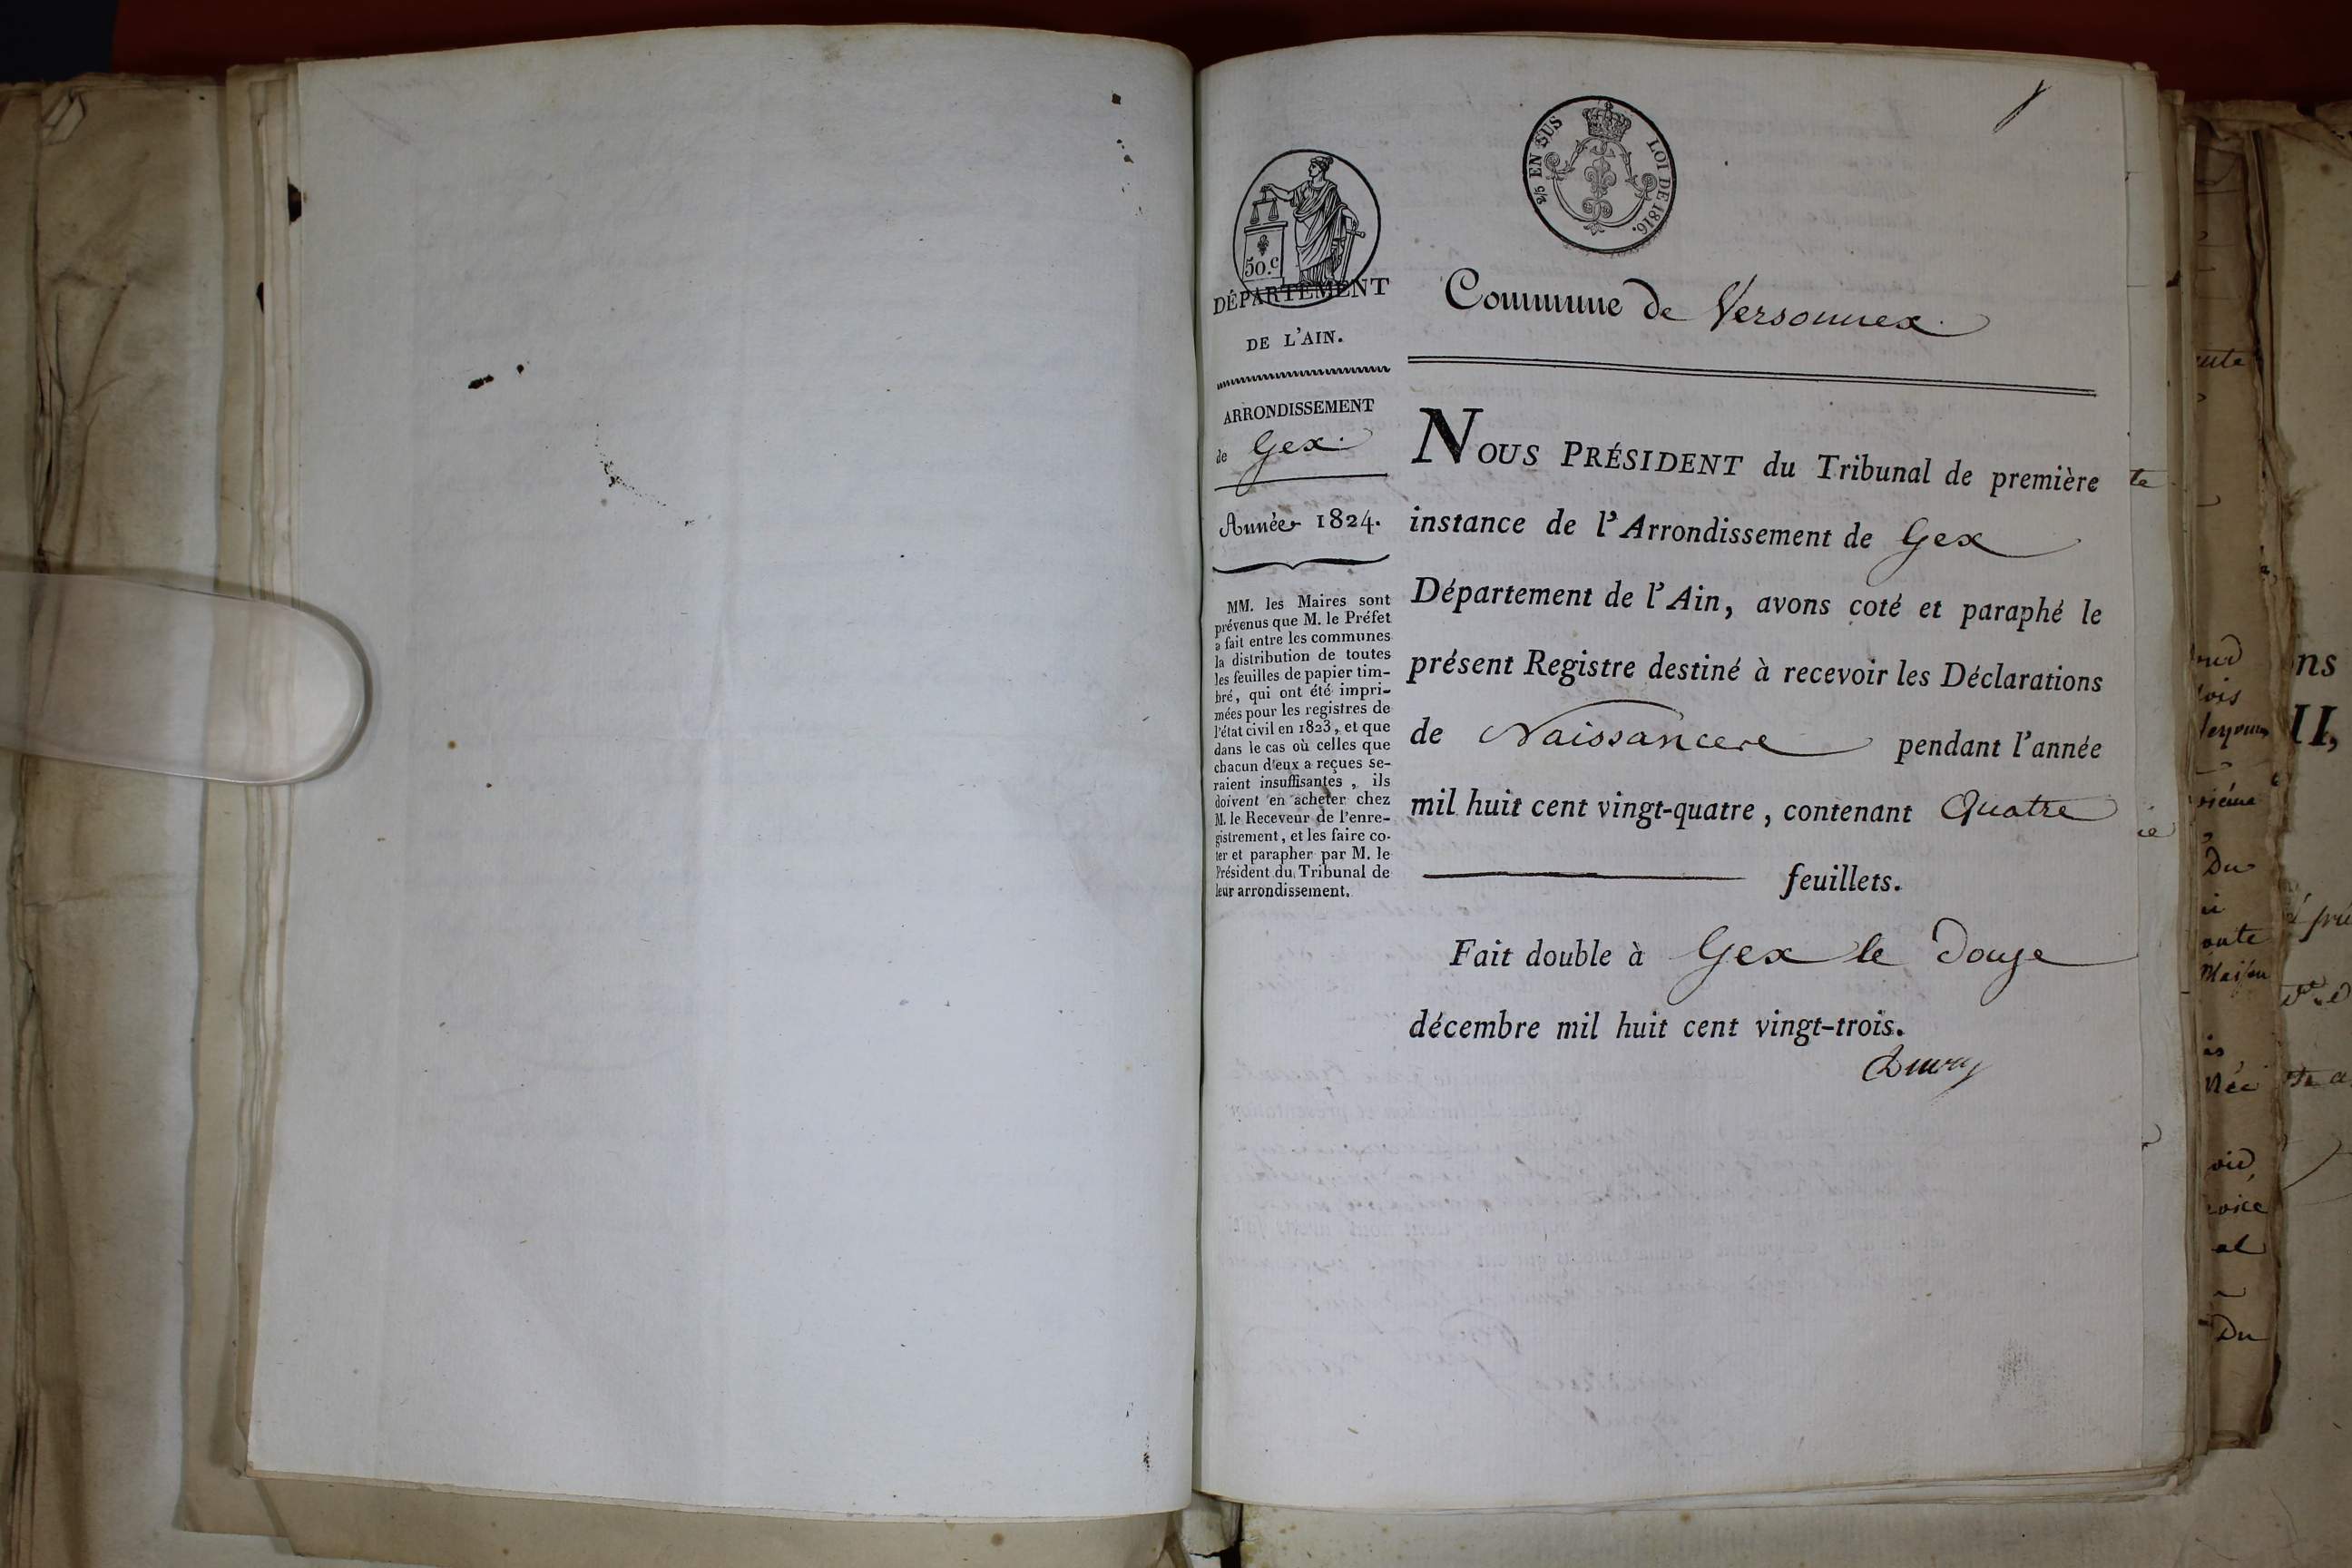 2/5 EN SUS
LOI DE 1816.
50.c
DÉPARTEMENT
DE L'AIN.
ARRONDISSEMENT
de Gex.
Année 1824.
MM. les Maires sont
prévenus que M. le Préfet
a fait entre les communes
la distribution de toutes
les feuilles de papier tim-
bré, qui ont été impri-
mées pour les registres de
l'état civil en 1823, et que
dans le cas où celles que
chacun d'eux a reçues se-
raient insuffisantes, ils
doivent en acheter chez
M. le Receveur de l'enre-
gistrement, et les faire co-
ter et parapher par M. le
Président du Tribunal de
leur arrondissement.
Commune de Versonnex.
NOUS PRÉSIDENT du Tribunal de première
instance de l'Arrondissement de Gex
Département de l'Ain, avons coté et paraphé le
présent Registre destiné à recevoir les Déclarations
de Naissance pendant l'année
mil huit cent vingt-quatre, contenant Quatre
feuillets.
Fait double à Gex le douze
décembre mil huit cent vingt-trois.
te
ce
Du
oute
née
al
Du
ns
II,